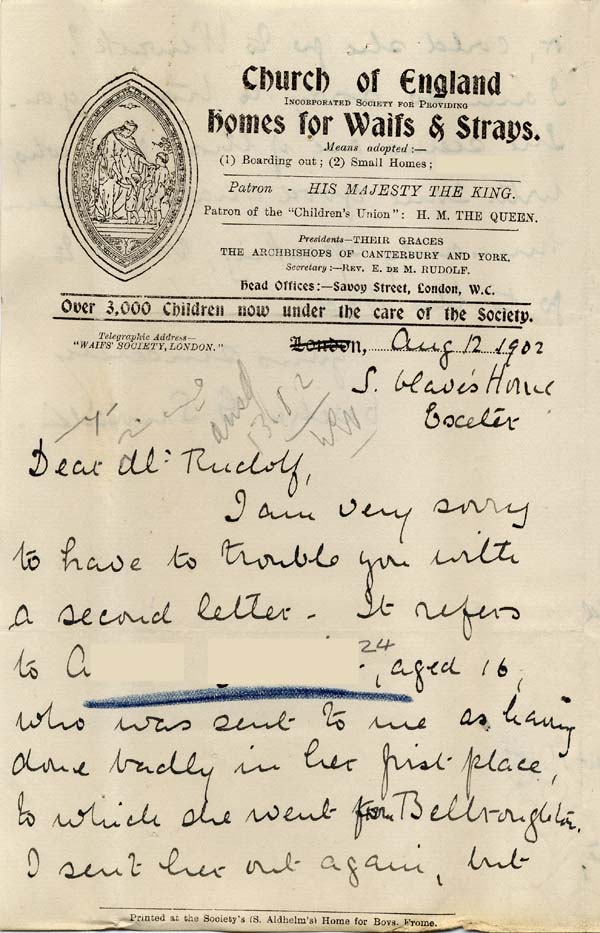 Church of England
Incorporated Society for Providing
Homes for Waifs & Strays.
Means adopted:—
(1) Boarding out; (2) Small Homes;
Patron - HIS MAJESTY THE KING.
Patron of the "Children's Union": H. M. THE QUEEN.
Presidents—THEIR GRACES
THE ARCHBISHOPS OF CANTERBURY AND YORK.
Secretary:—Rev. E. de M. RUDOLF.
Head Offices:—Savoy Street, London, W.C.
Over 3,000 Children now under the care of the Society.
Telegraphic Address—
"WAIFS' SOCIETY, LONDON."
London, Aug 12 1902
S. Olave's Home
Exeter
Dear Mr. Rudolf,
I am very sorry
to have to trouble you with
a second letter - It refers
to A
24
, aged 16,
who was sent to me as having
done badly in her first place,
to which she went from Bellbroughton.
I sent her out again, but
Printed at the Society's (S. Aldhelm's) Home for Boys, Frome.